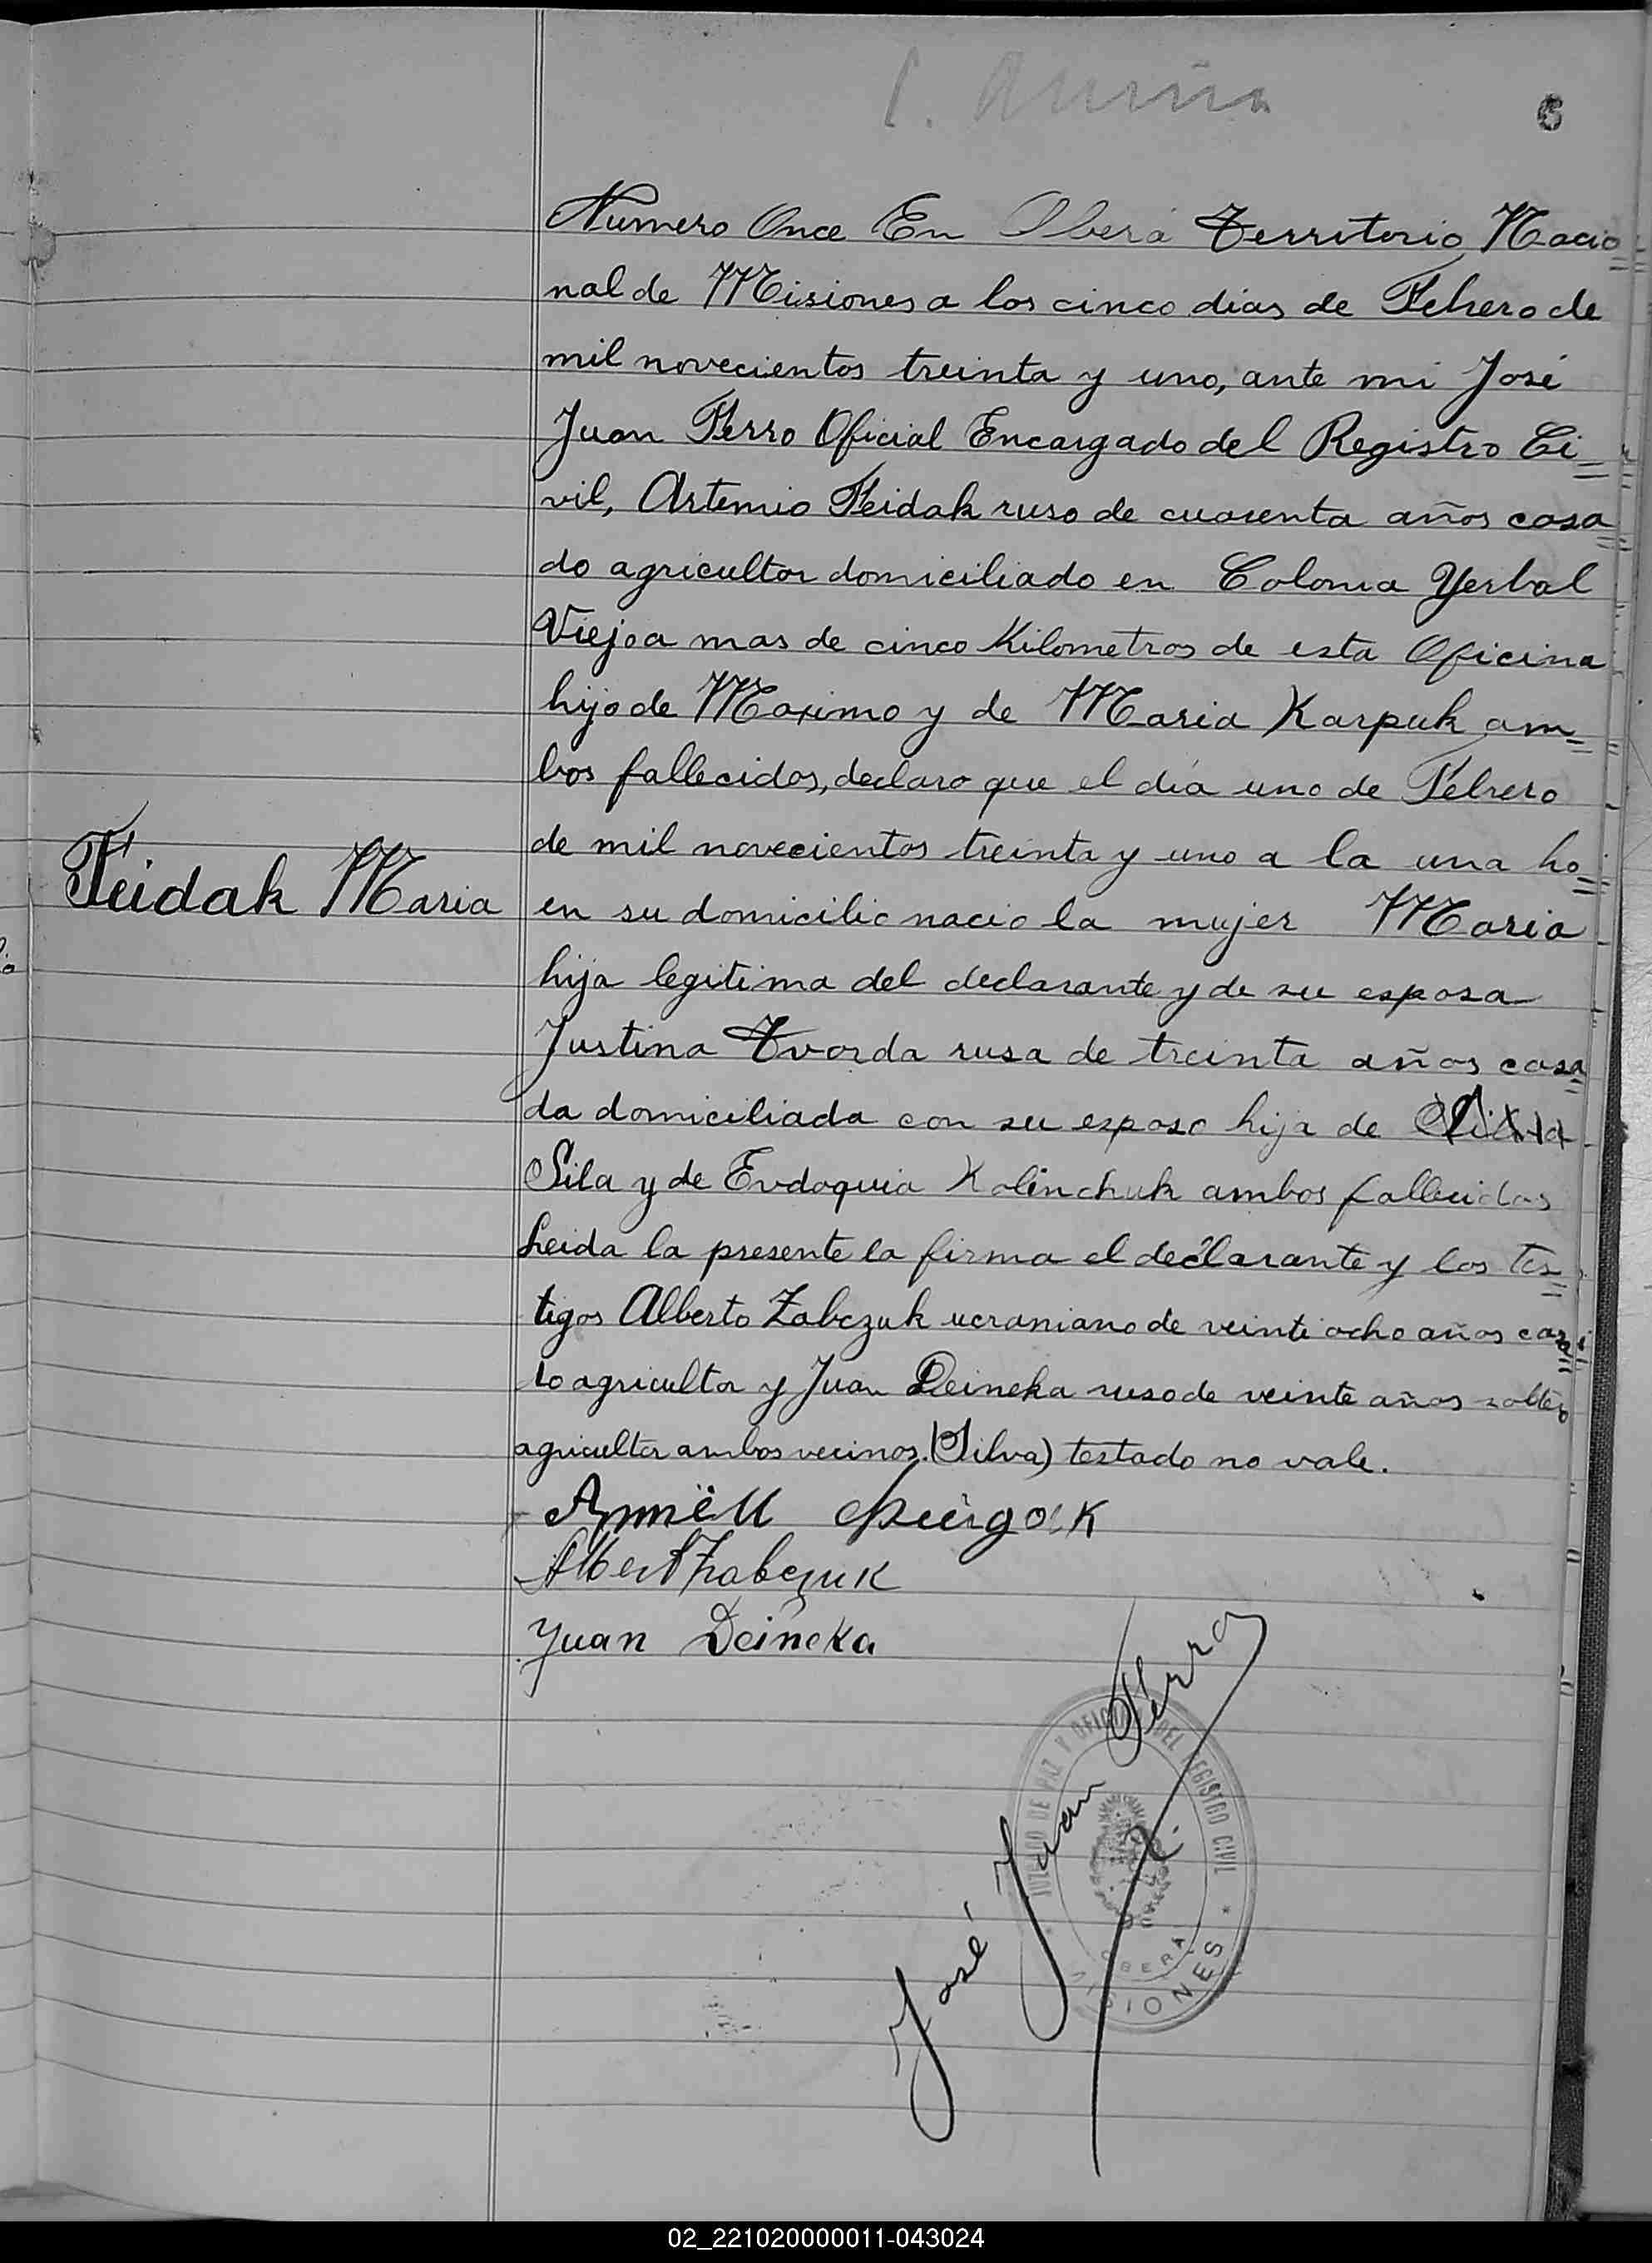 6
Numero Once En Oberá Territorio Nacio=
nal de Misiones a los cinco dias de Febrero de
mil novecientos treinta y uno, ante mi José
Juan Ferro Oficial Encargado del Registro Ci=
vil, Artemio Feidak ruso de cuarenta años casa=
do agricultor domiciliado en Colonia Yerbal
Viejo a mas de cinco Kilometros de esta Oficina
hijo de Maximo y de Maria Karpuk am=
bos fallecidos, declaro que el día uno de Febrero
de mil novecientos treinta y uno a la una ho=
Feidak Maria
en su domicilio nacio la mujer Maria
hija legitima del declarante y de su esposa
Justina Tvorda rusa de treinta años casa=
da domiciliada con su esposo hija de
Sila y de Evdoquia Kalinchuk ambos fallecidos
Leida la presente la firma el declarante y los tes=
tigos Alberto Zabczuk ucraniano de veinti ocho años casa=
do agricultor y Juan Deineka ruso de veinte años soltero
agricultor ambos vecinos. (Silva) testado no vale.
Albert Zabczuk
Juan Deineka
José Juan Ferro
JUZGADO DE PAZ Y OFICINA DEL REGISTRO CIVIL
OBERA
MISIONES
02_221020000011-043024